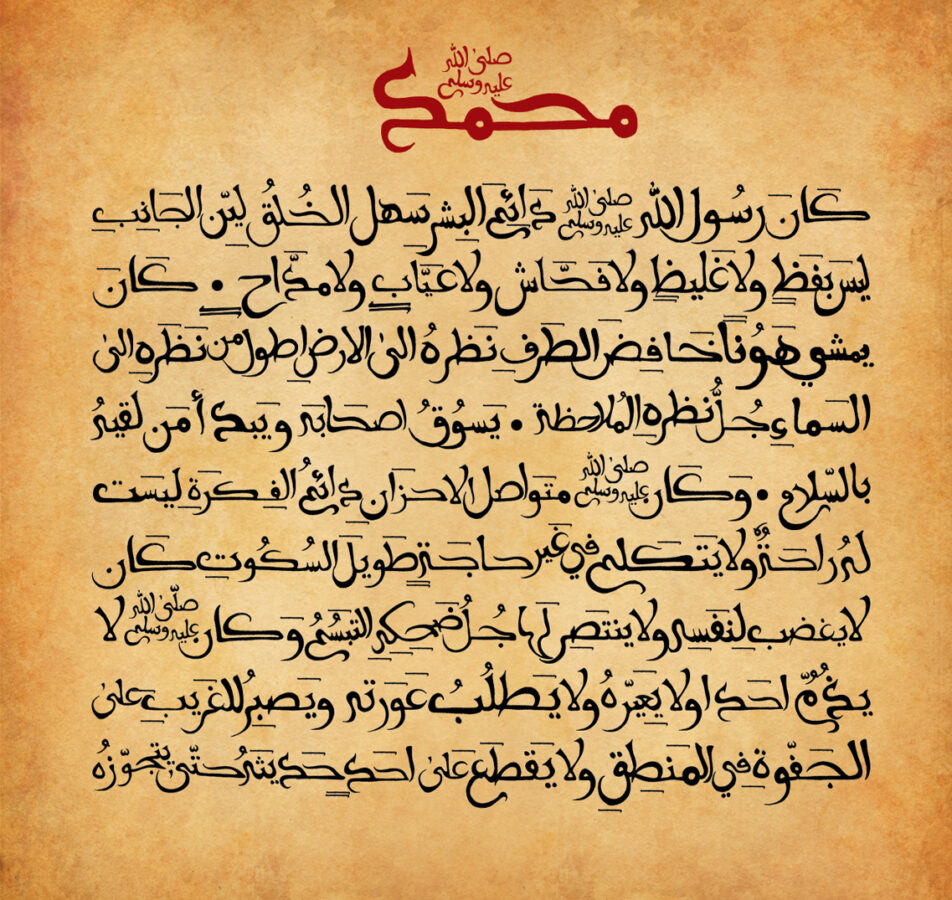 محمد صلى الله عليه وسلم
كَانَ رسُول الله صلى الله عليه وسلم دَائِمَ البِشرِ سَهل الخُلُقِ ليّن الجَانِبِ
ليسَ بفَظٍّ ولا غَليظٍ ولا فَحَّاش ولا عيَّابٍ ولا مدَّاحٍ • كَانَ
يمشي هَوْنًا خَافِضَ الطَرفِ نظَرهُ الى الارضِ اطول من نَظَرهِ الى
السَماءِ جُلُّ نظرهِ المُلاحظة • يَسُوقُ اصحَابَه ويَبدأ مَن لقيهُ
بالسّلام • وَكَان صلى الله عليه وسلم متواصل الاحزان دائمُ الفِكرَةِ ليسَت
لهُ رَاحَةٌ ولا يتَكلم في غَير حاجَةٍ طَويلَ السُكُوتِ كَان
لا يغضب لنَفسِه ولا ينتَصِر لهَا جُلُّ ضَحِكِهِ التَبَسُّمُ وَكَان صلّى الله عليه وسلم لا
يذُمُّ احَدا ولا يعَيّرهُ ولا يَطلُبُ عَورَته ويَصبِرُ للغَريبِ على
الجَفوَةِ في المَنطِقِ ولا يَقطَع عَلى احَدٍ حَديثَهُ حتّى يتجوّزهُ